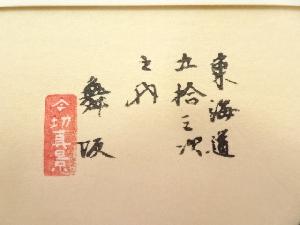 東海道
五拾三次
之内
舞阪
今切真景